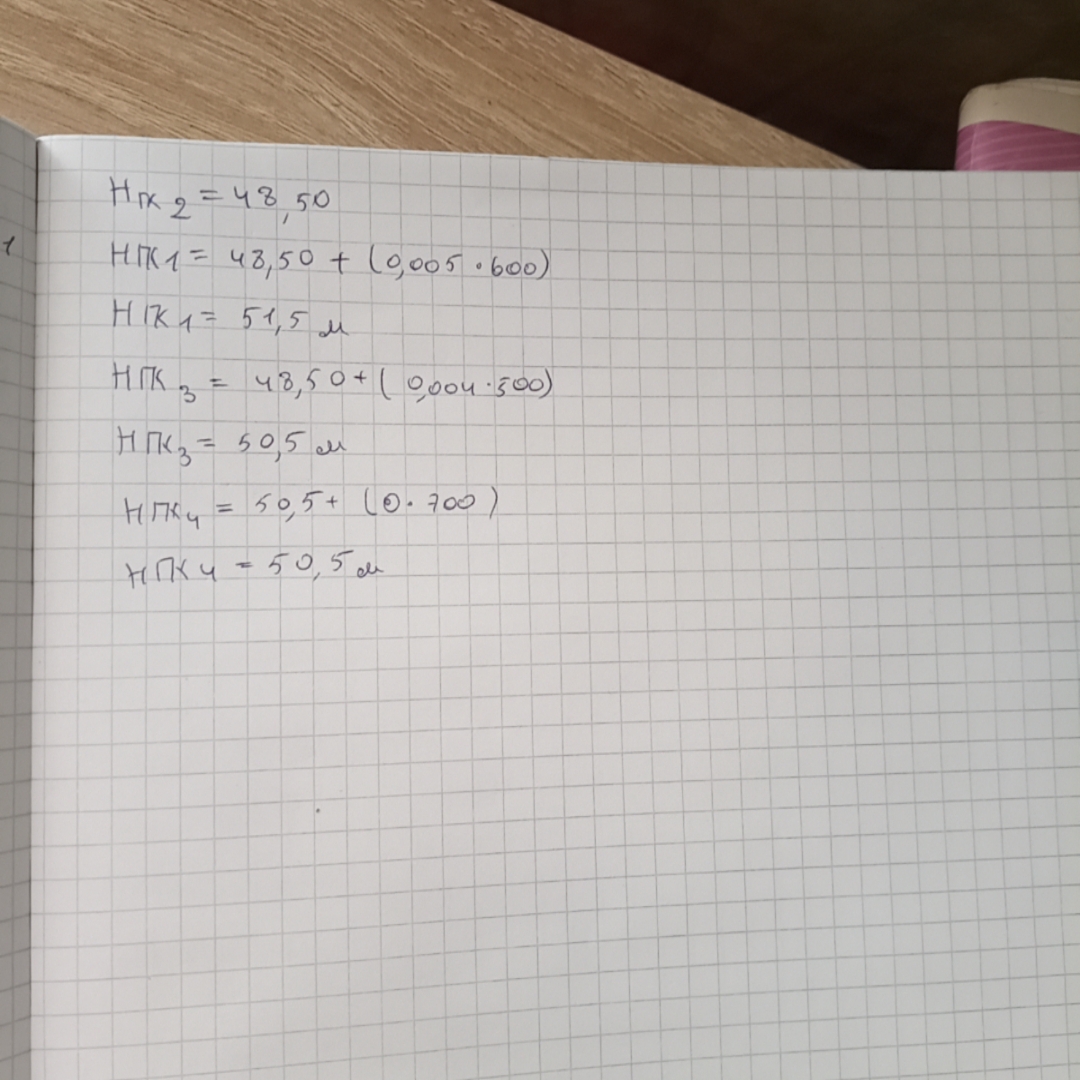 1
НПК2 = 48,50
НПК1 = 48,50 + (0,005 · 600)
НПК1 = 51,5 м
НПК3 = 48,50 + (0,004 · 500)
НПК3 = 50,5 м
НПК4 = 50,5 + (0 · 700)
НПК4 = 50,5 м